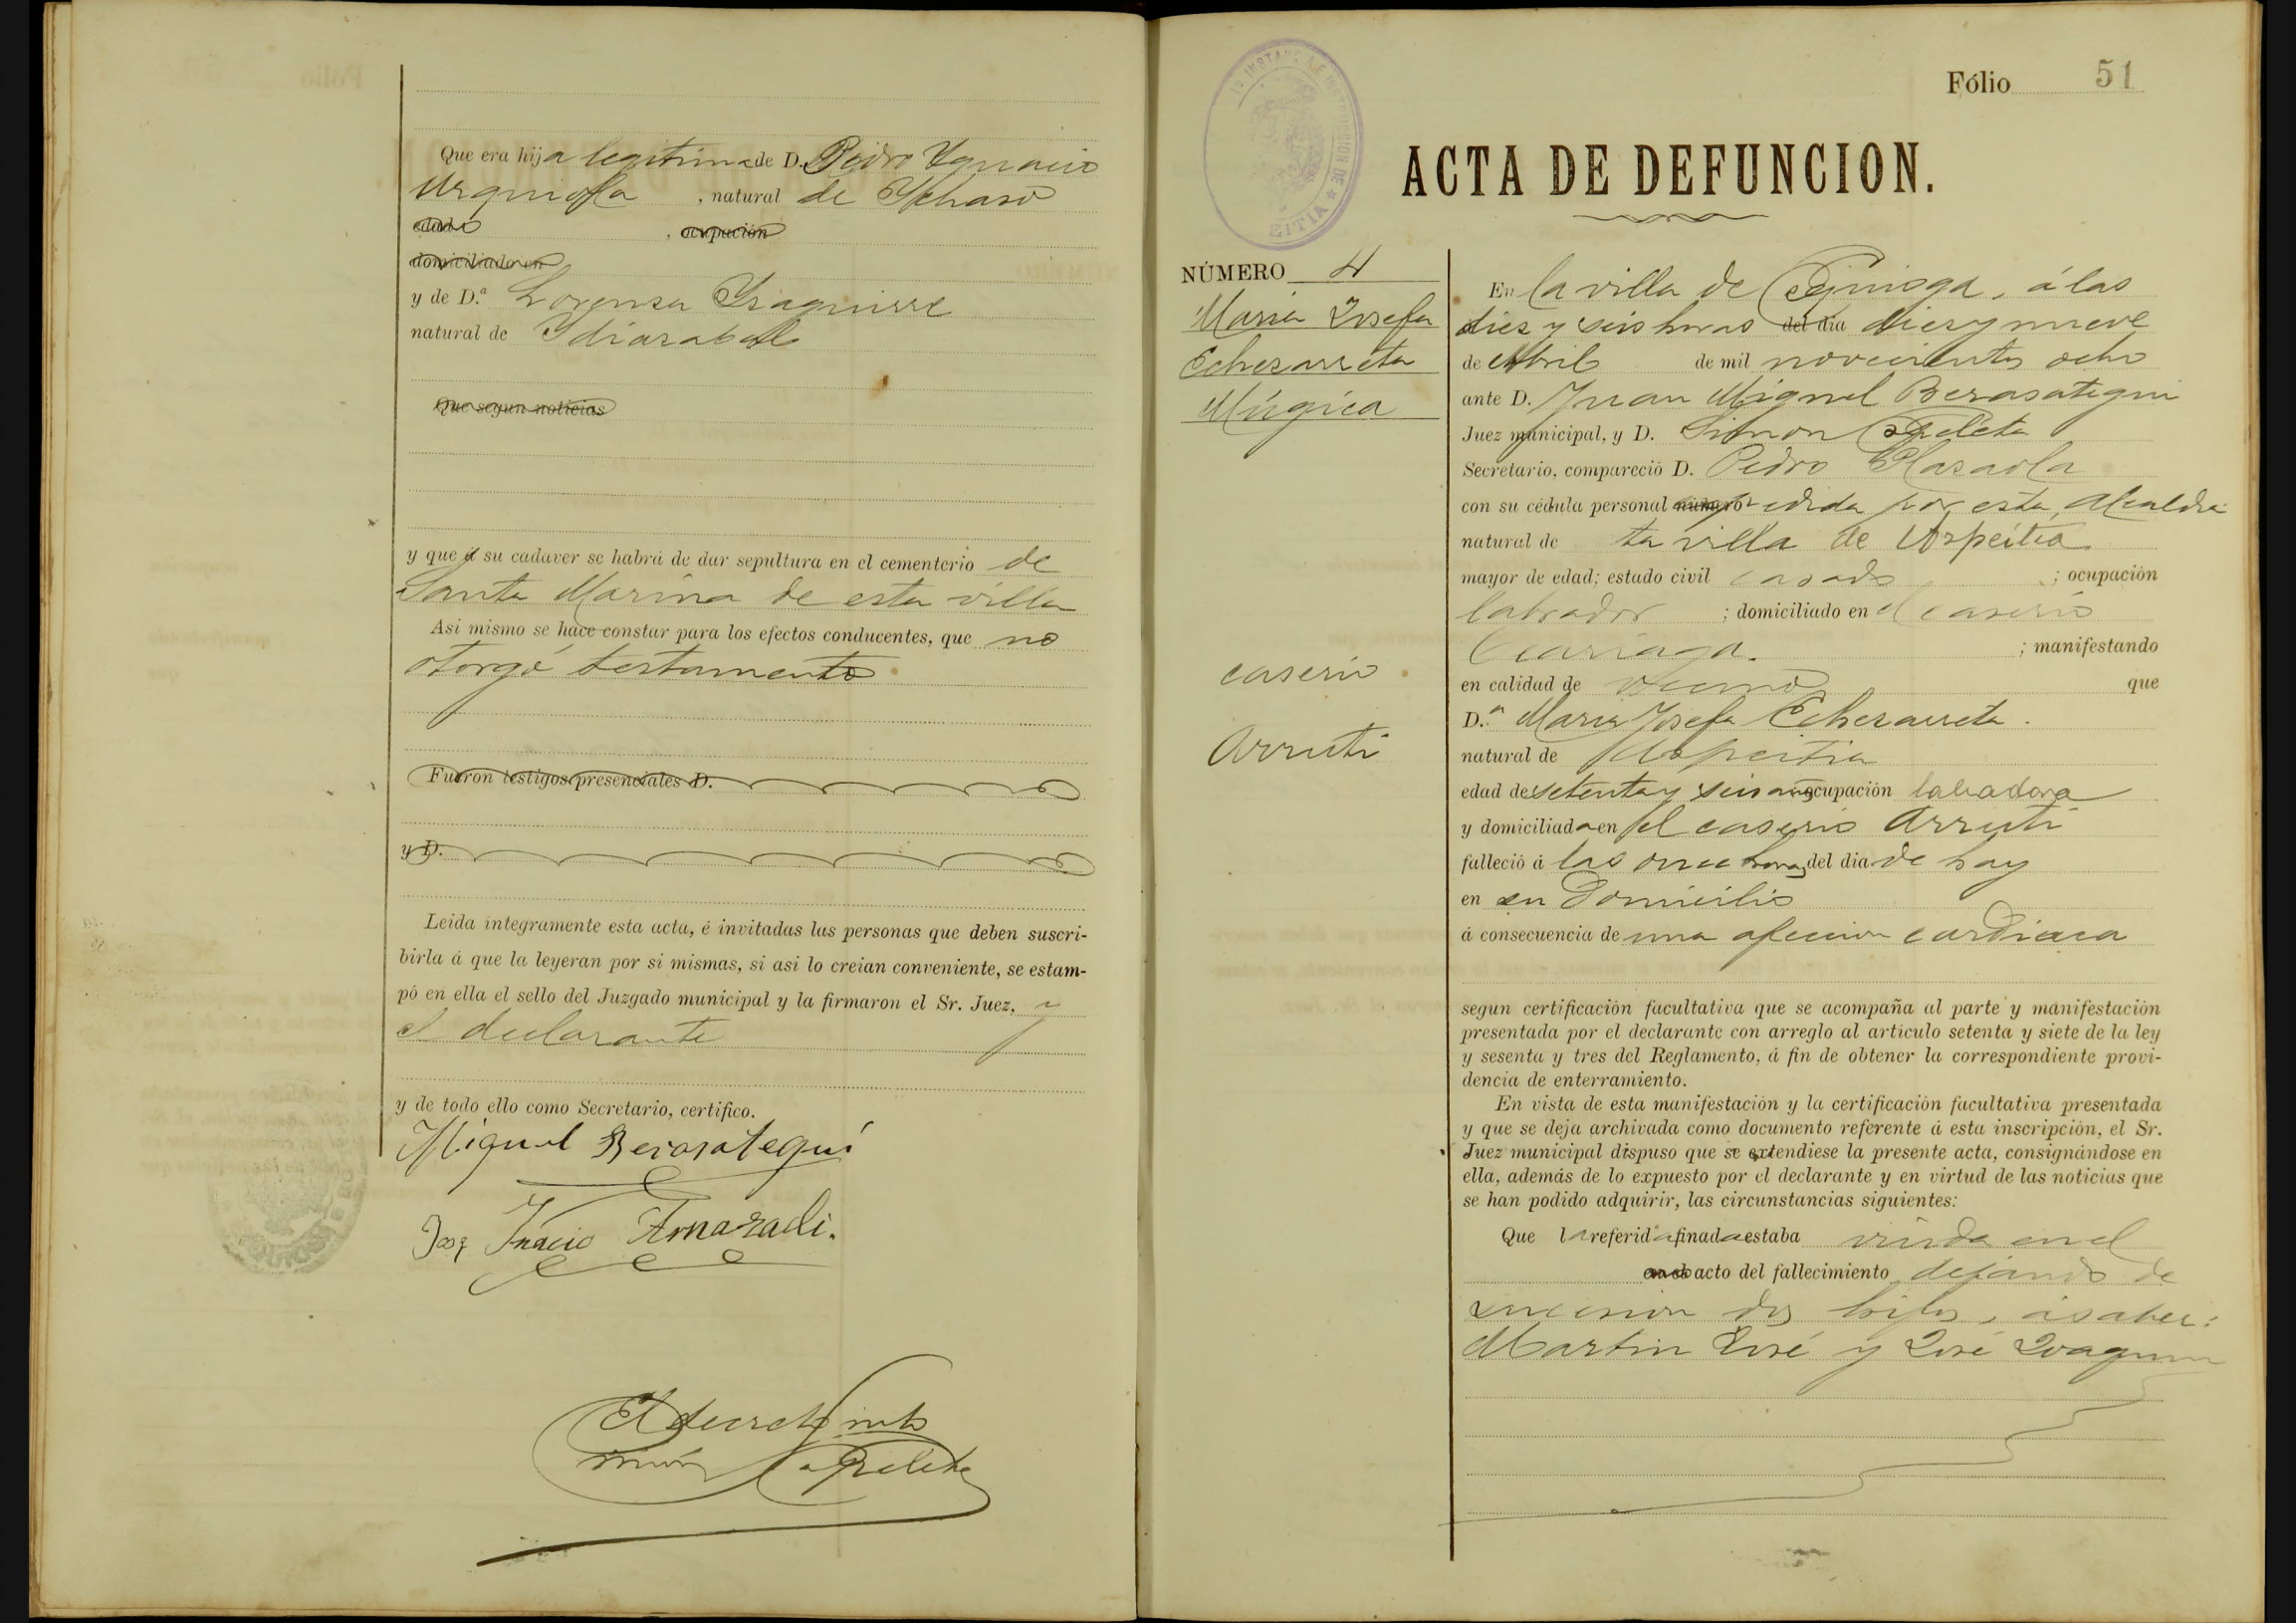 Que era hija legitima de D. Pedro Ygnacio
Urquiola, natural de Ychaso
edad , ocupación
domiciliado en
y de D.ª Lorenza Ysaguirre
natural de Ydiazabal
Que segun noticias
y que á su cadaver se habrá de dar sepultura en el cementerio de
Santa Marina de esta villa
Asi mismo se hace constar para los efectos conducentes, que no
otorgó testamento
Fueron testigos presenciales D.
y D.
Leida integramente esta acta, é invitadas las personas que deben suscri-
birla á que la leyeran por si mismas, si asi lo creian conveniente, se estam-
pó en ella el sello del Juzgado municipal y la firmaron el Sr. Juez, y
el declarante
y de todo ello como Secretario, certifico.
Miguel Berasategui
Jose Inacio
El Secretario
Fólio 51
ACTA DE DEFUNCION.
NÚMERO 4
Maria Josefa
Echezarreta
Múgica
caserio
Arruti
En la villa de , á las
diez y seis horas del dia diez y nueve
de Abril de mil novecientos ocho
ante D. Juan Miguel Berasategui
Juez municipal, y D. Simon
Secretario, compareció D. Pedro Olasaola
con su cédula personal número expedida por esta Alcaldia
natural de la villa de Azpeitia
mayor de edad; estado civil casado ; ocupación
labrador ; domiciliado en el caserio
; manifestando
en calidad de vecino que
D.ª Maria Josefa Echezarreta.
natural de Azpeitia
edad de setenta y seis años ocupación labradora
y domiciliada en el caserio Arruti
falleció á las once horas del dia de hoy
en su Domicilio
á consecuencia de una afeccion cardiaca
segun certificación facultativa que se acompaña al parte y manifestación
presentada por el declarante con arreglo al artículo setenta y siete de la ley
y sesenta y tres del Reglamento, á fin de obtener la correspondiente provi-
dencia de enterramiento.
En vista de esta manifestación y la certificación facultativa presentada
y que se deja archivada como documento referente á esta inscripción, el Sr.
Juez municipal dispuso que se extendiese la presente acta, consignándose en
ella, además de lo expuesto por el declarante y en virtud de las noticias que
se han podido adquirir, las circunstancias siguientes:
Que la referida finada estaba viuda en el
en el acto del fallecimiento dejando de
sucesion dos hijos, á saber:
Martin José y José Joaquin